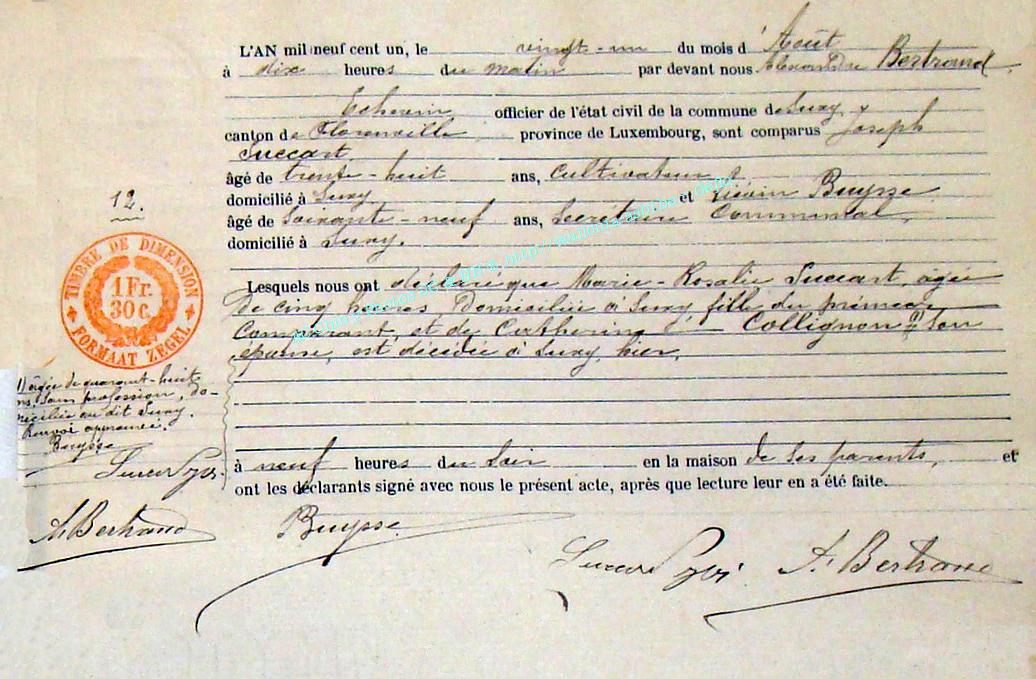 L'AN mil neuf cent un, le vingt-un du mois d'Août
à dix heures du matin par devant nous Alexandre Bertrand
Echevin officier de l'état civil de la commune de Suxy
canton de Florenville province de Luxembourg, sont comparus Joseph
Succart
âgé de trente-huit ans, cultivateur
domicilié à Suxy. et Liévin Buysse
âgé de Soixante-neuf ans, Secrétaire Communal,
domicilié à Suxy.
Lesquels nous ont déclaré que Marie-Rosalie Succart, âgée
de cinq heures, Domiciliée à Suxy, fille du prémier
Comparant, et de Catherine Collignon (1) Son
épouse, est décédée à Suxy, hier,
à neuf heures du Soir en la maison de ses parents, et
ont les déclarants signé avec nous le présent acte, après que lecture leur en a été faite.
12.
TIMBRE DE DIMENSION
1 Fr.
30 c.
FORMAAT ZEGEL
1) âgée de quarant-huit
ns, Sans profession, do-
miciliée au dit Suxy.
Renvoi approuvé.
Buysse
A. Bertrand
Buysse
A. Bertrand